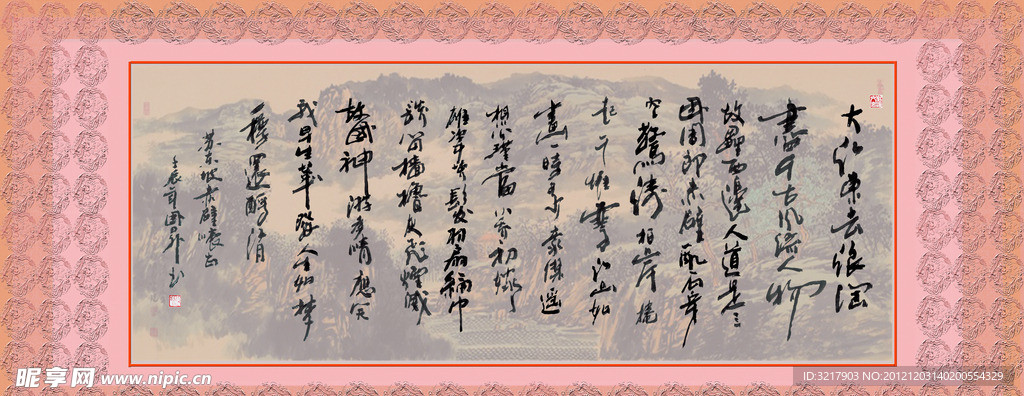 大江東去浪淘
盡千古風流人物
故壘西邊人道是三
國周郎赤壁亂石穿
空驚濤拍岸捲
起千堆雪江山如
畫一時多少豪傑遙
想公瑾當年小喬初嫁了
雄姿英發羽扇綸巾
談笑間檣櫓灰飛煙滅
故國神遊多情應笑
我早生華發人生如夢
一樽還酹江月
蘇東坡赤壁懷古
壬辰年
昵享网 www.nipic.cn
ID:3217903 NO:20121203140200554329